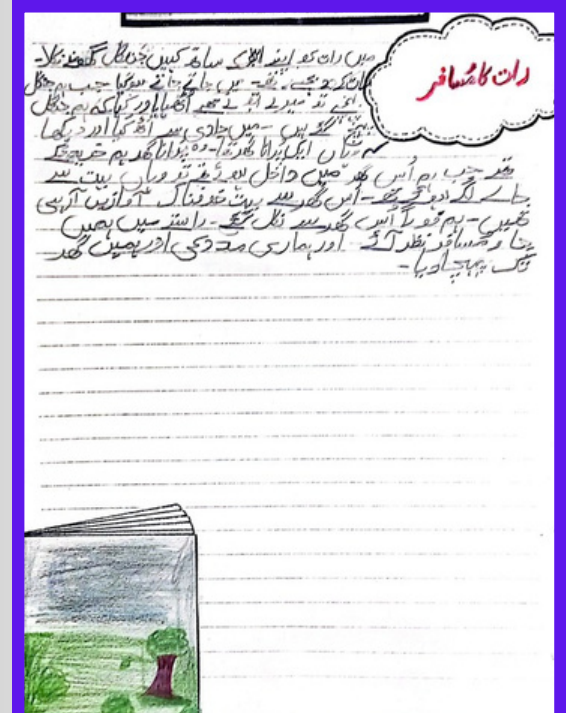 رات کا مسافر
میں رات کو اپنے ابو کے ساتھ کہیں جنگل گھومنے نکلا۔
رات کے دو بجے تھے۔ میں جاتے جاتے سو گیا جب ہم جنگل
پہنچے تو میرے ابو نے مجھے اٹھایا اور کہا کہ ہم جنگل
پہنچ گئے ہیں۔ میں جلدی سے اُٹھ گیا اور دیکھا
وہاں ایک پرانا گھر تھا۔ وہ پرانا گھر ہم
تھے جب ہم اُس گھر میں داخل ہوئے تو وہاں بہت سے
جالے لگے ہوئے تھے۔ اُس گھر سے بہت خوفناک آوازیں آ رہی
تھیں۔ ہم فوراً اُس گھر سے نکل گئے۔ راستے میں ہمیں
مسافر نظر آئے اور ہماری مدد کی اور ہمیں گھر
تک پہنچا دیا۔